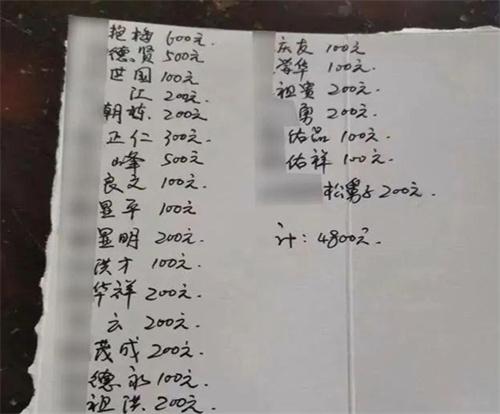 艳梅 600元.
德贤 500元
世国 100元
江 200元.
朝栋. 200元.
正仁 300元.
峰 500元
良文 100元.
显平 100元
显明 200元.
洪才 100元.
华祥 200元.
云 200元.
茂成 200元.
德永 100元.
祖洪. 200元.
庆友 100元.
荣华 100元.
祖贵 200元.
勇 200元.
佑品 100元.
佑祥 100元.
松 200元.
计: 4800元.